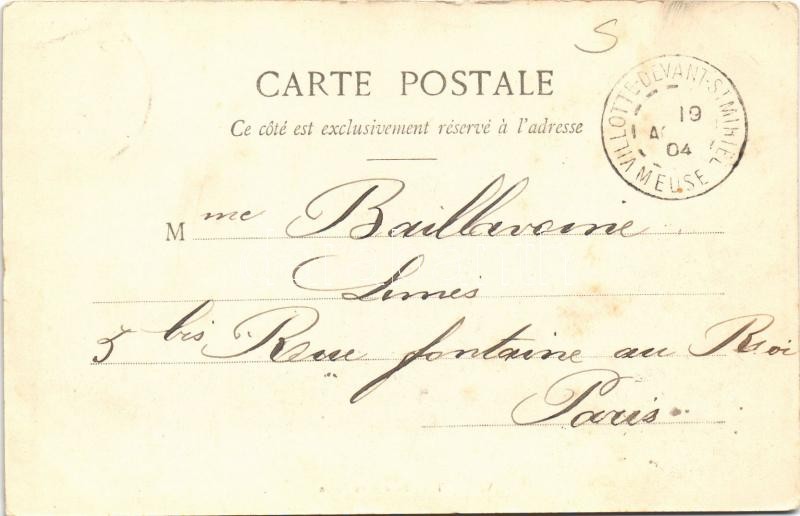 S
CARTE POSTALE
Ce côté est exclusivement réservé à l'adresse
VILLOTTE-DEVANT-ST MIHIEL
19
04
MEUSE
Mme Baillavoine
5 bis Rue fontaine au Roi
Paris